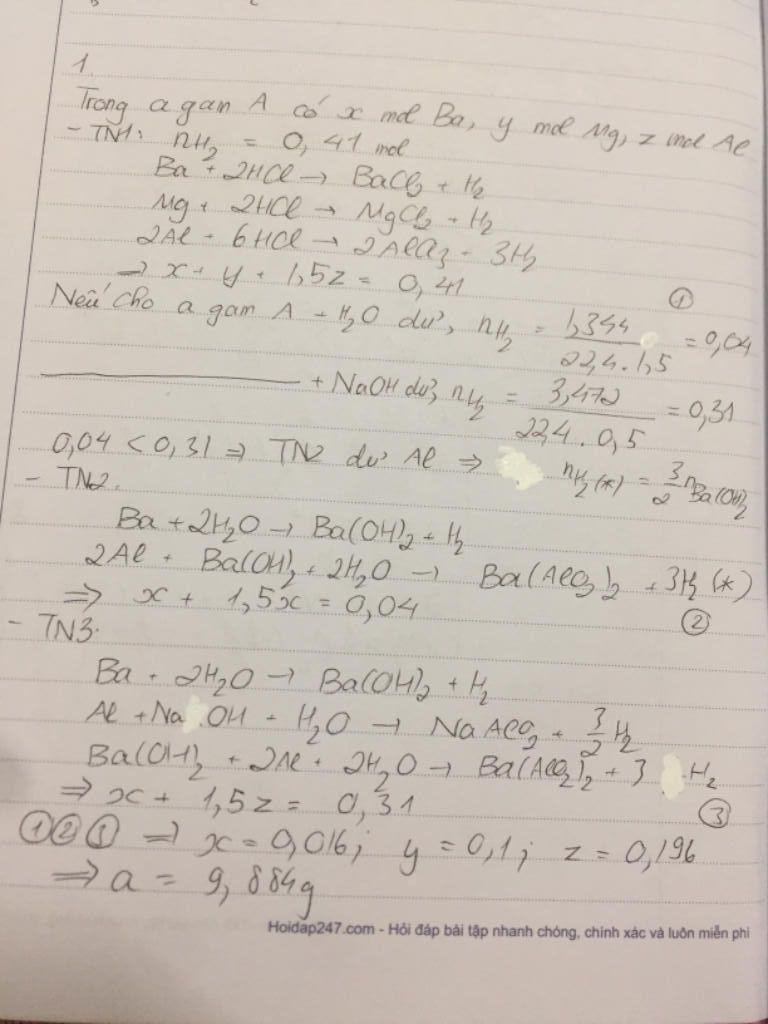 1.
Trong a gam A có x mol Ba, y mol Mg, z mol Al
- TN1: nH2 = 0,41 mol
Ba + 2HCl → BaCl2 + H2
Mg + 2HCl → MgCl2 + H2
2Al + 6HCl → 2AlCl3 + 3H2
⇒ x + y + 1,5z = 0,41 ①
Nếu cho a gam A + H2O dư, nH2 = 1,344 / 22,4.1,5 = 0,04
———— + NaOH dư, nH2 = 3,472 / 22,4.0,5 = 0,31
0,04 < 0,31 ⇒ TN2 dư Al ⇒ nH2(*) = 3/2 nBa(OH)2
- TN2.
Ba + 2H2O → Ba(OH)2 + H2
2Al + Ba(OH)2 + 2H2O → Ba(AlO2)2 + 3H2 (*)
⇒ x + 1,5x = 0,04 ②
- TN3.
Ba + 2H2O → Ba(OH)2 + H2
Al + NaOH + H2O → NaAlO2 + 3/2 H2
Ba(OH)2 + 2Al + 2H2O → Ba(AlO2)2 + 3 H2
⇒ x + 1,5z = 0,31 ③
①②③ ⇒ x = 0,016; y = 0,1; z = 0,196
⇒ a = 9,884g
Hoidap247.com - Hỏi đáp bài tập nhanh chóng, chính xác và luôn miễn phí